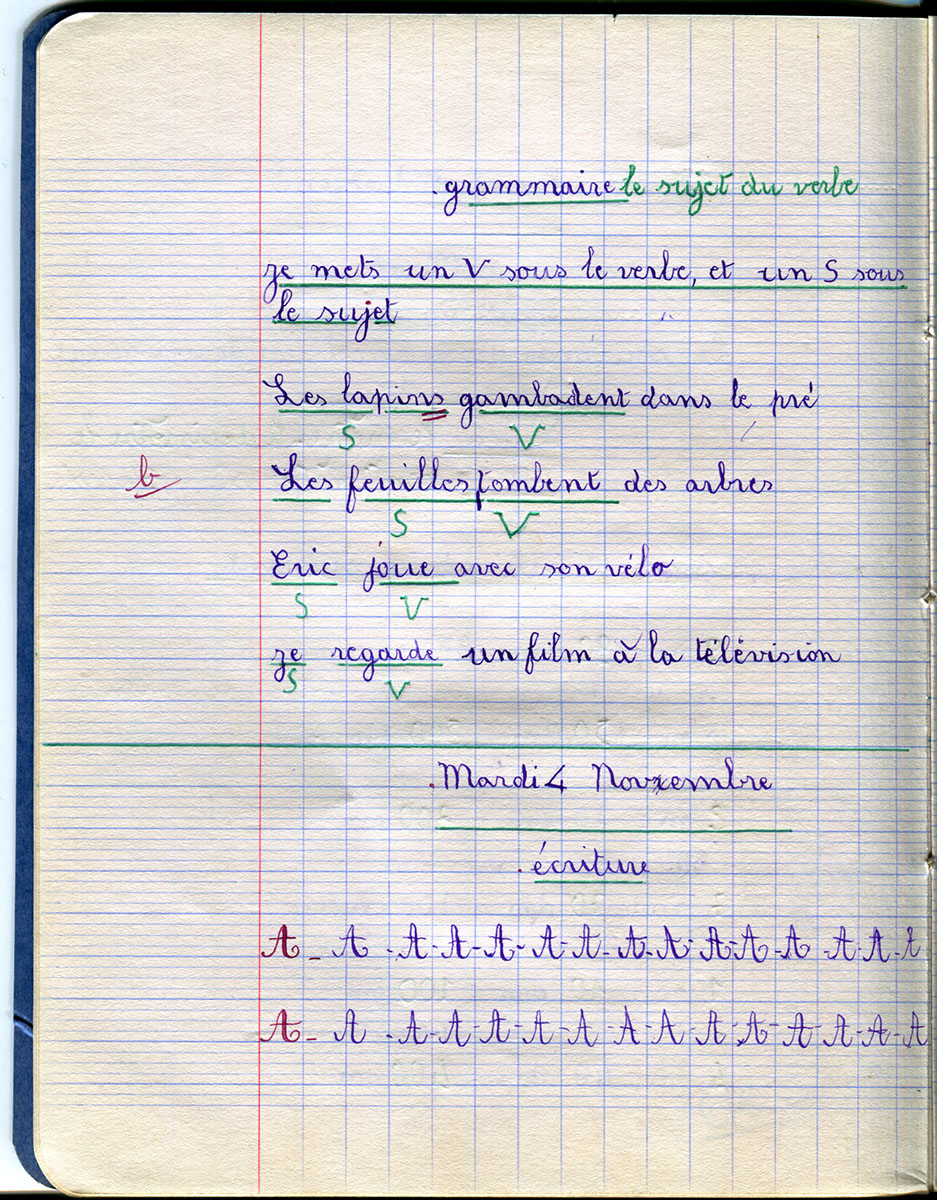 . grammaire le sujet du verbe
je mets un V sous le verbe, et un S sous
le sujet
Les lapins gambadent dans le pré
S V
b
Les feuilles tombent des arbres
S V
Eric joue avec son vélo
S V
je regarde un film à la télévision
S V
. Mardi 4 Novembre
. écriture
A - A - A - A - A - A - A - A - A - A - A - A - A - A - A
A - A - A - A - A - A - A - A - A - A - A - A - A - A - A